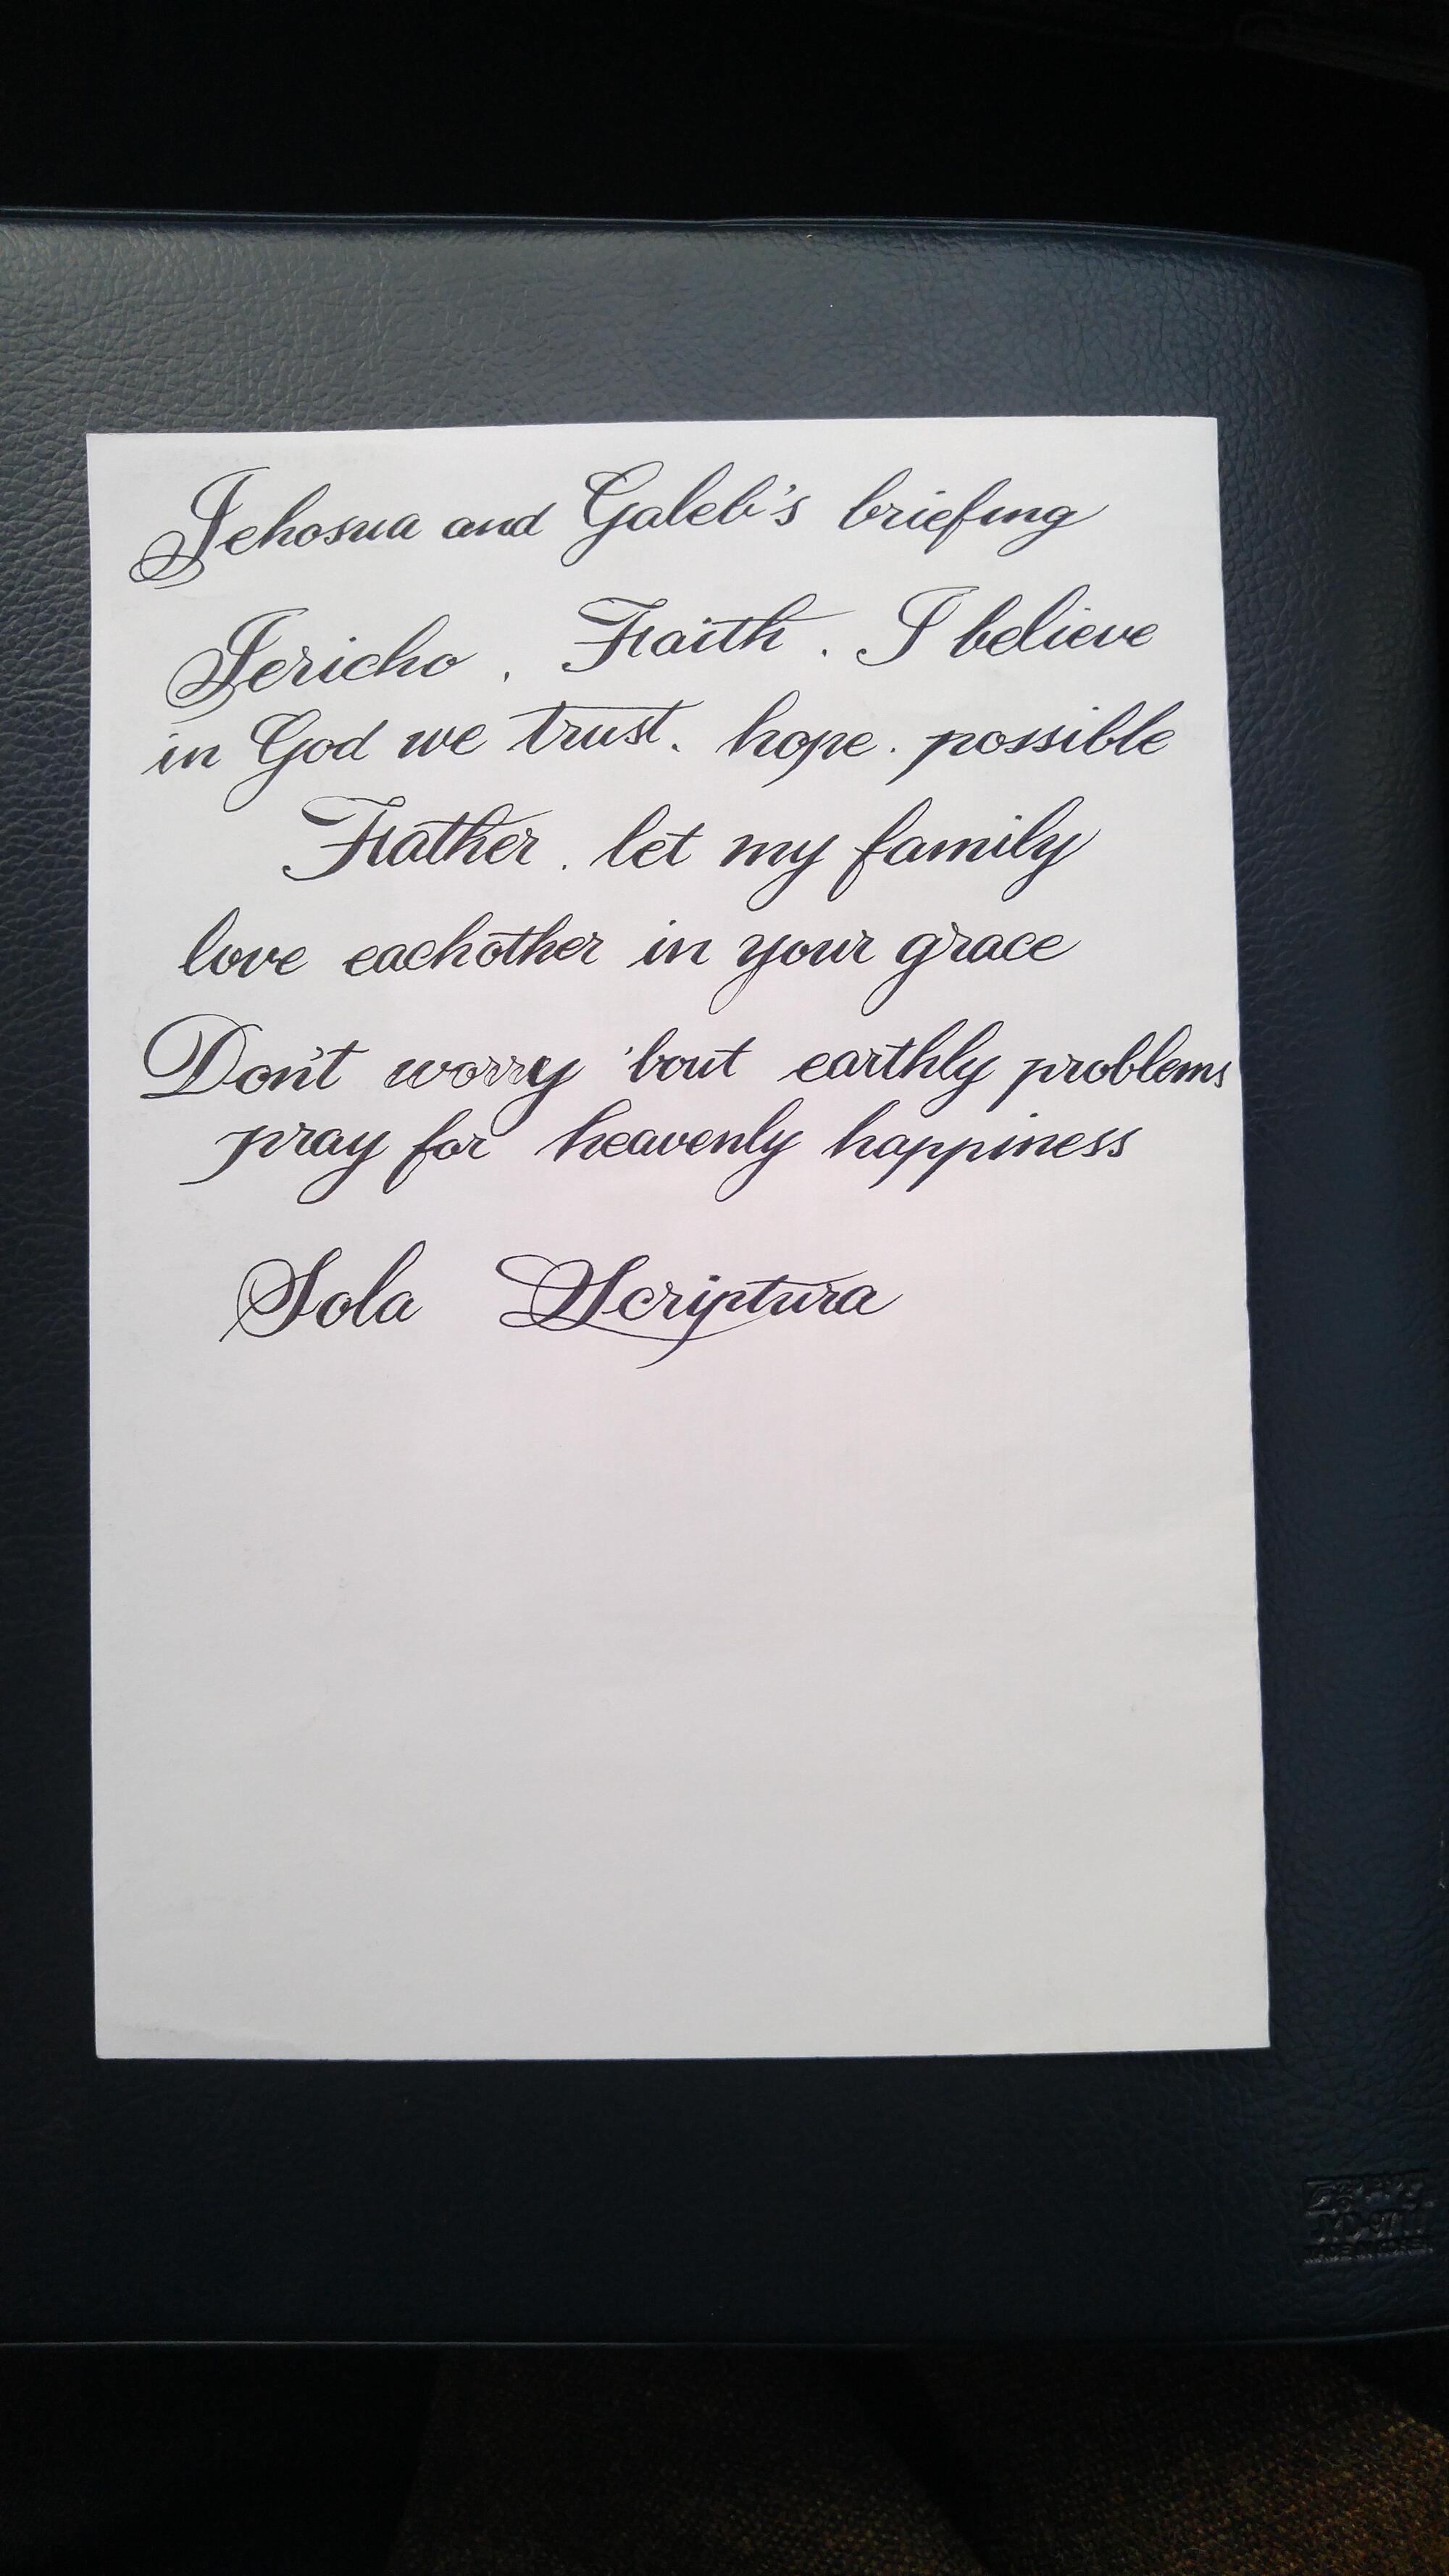 Jehosua and Galeb's briefing
Jericho . Faith . I believe
in God we trust. hope. possible
Father . let my family
love eachother in your grace
Don't worry 'bout earthly problems
pray for heavenly happiness
Sola Scriptura